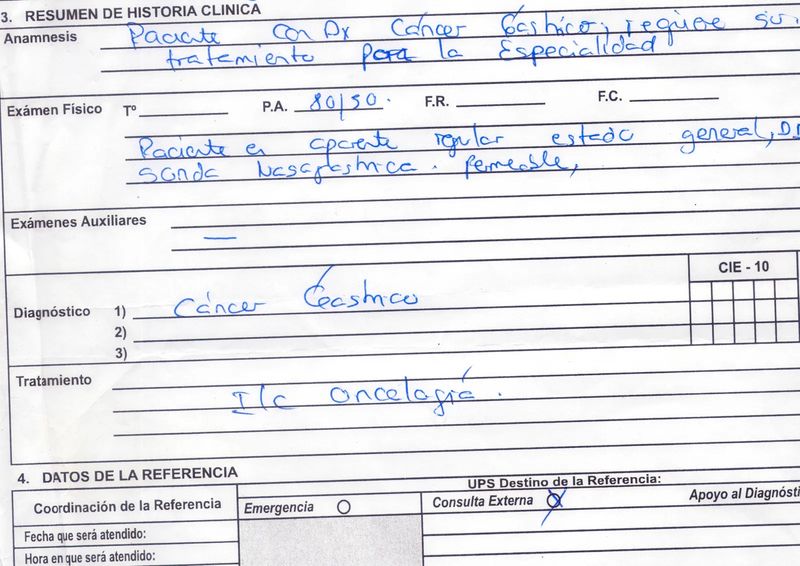 3. RESUMEN DE HISTORIA CLINICA
Anamnesis Paciente con Dx Cáncer Gástrico, requiere su
tratamiento para la Especialidad
Exámen Físico Tº P.A. 80/50. F.R. F.C.
Paciente en aparente regular estado general,
Sonda Nasogástrica. Permeable,
Exámenes Auxiliares
—
CIE - 10
Diagnóstico 1) Cáncer Gástrico
2)
3)
Tratamiento
I/c Oncología.
4. DATOS DE LA REFERENCIA
UPS Destino de la Referencia:
Coordinación de la Referencia Emergencia Consulta Externa X Apoyo al Diagnósti
Fecha que será atendido:
Hora en que será atendido: